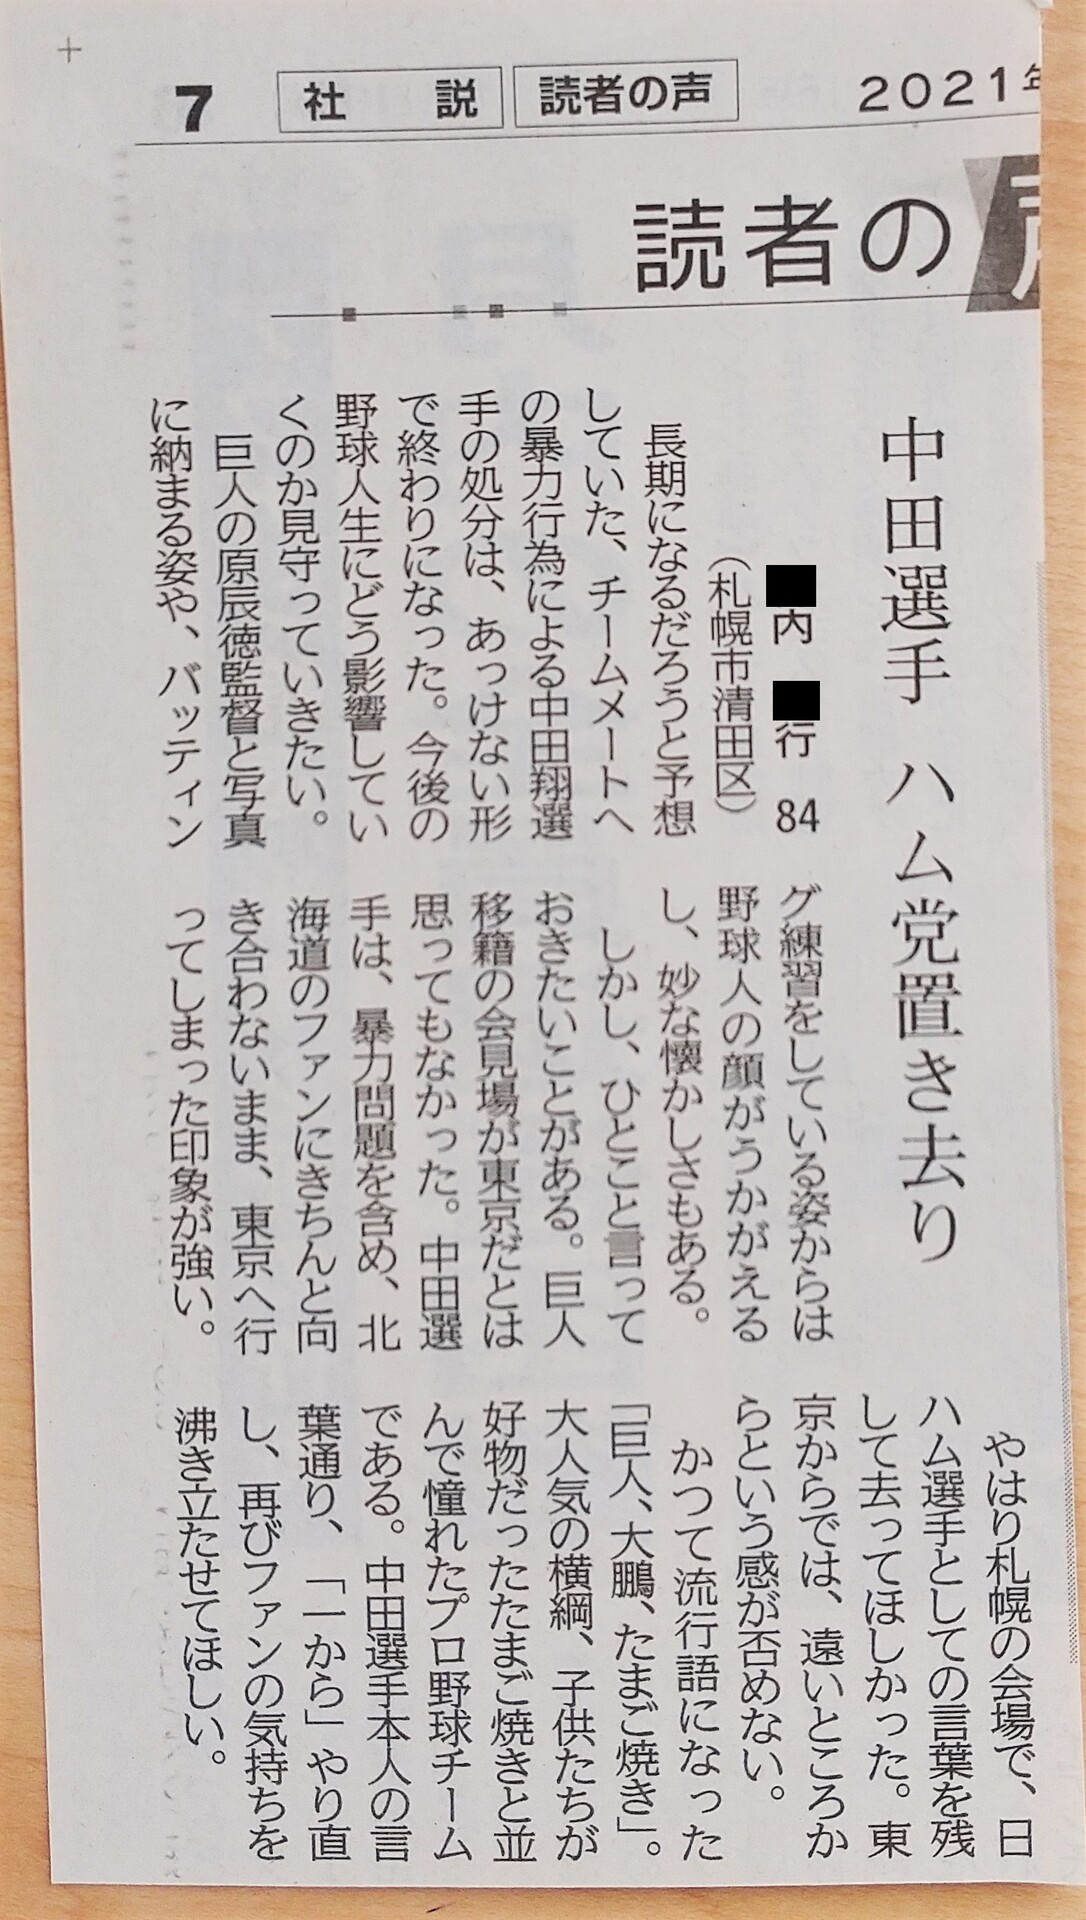 7
社説
読者の声
2021年
読者の声
中田選手 ハム党置き去り
内 行 84
（札幌市清田区）
長期になるだろうと予想
していた、チームメートへ
の暴力行為による中田翔選
手の処分は、あっけない形
で終わりになった。今後の
野球人生にどう影響してい
くのか見守っていきたい。
巨人の原辰徳監督と写真
に納まる姿や、バッティン
グ練習をしている姿からは
野球人の顔がうかがえる
し、妙な懐かしさもある。
しかし、ひとこと言って
おきたいことがある。巨人
移籍の会見場が東京だとは
思ってもなかった。中田選
手は、暴力問題を含め、北
海道のファンにきちんと向
き合わないまま、東京へ行
ってしまった印象が強い。
やはり札幌の会場で、日
ハム選手としての言葉を残
して去ってほしかった。東
京からでは、遠いところか
らという感が否めない。
かつて流行語になった
「巨人、大鵬、たまご焼き」。
大人気の横綱、子供たちが
好物だったたまご焼きと並
んで憧れたプロ野球チーム
である。中田選手本人の言
葉通り、「一から」やり直
し、再びファンの気持ちを
沸き立たせてほしい。